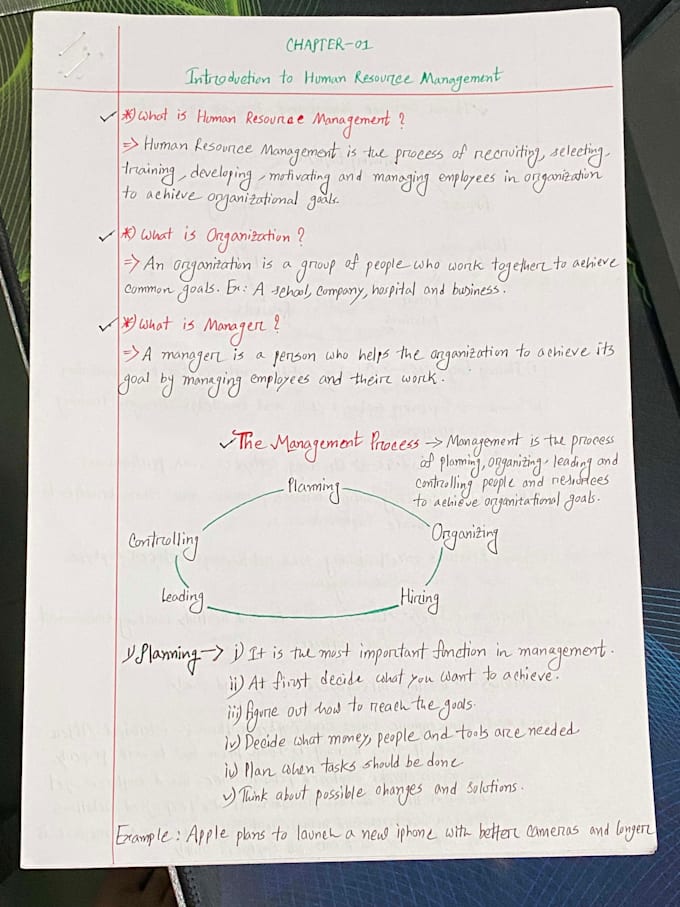 CHAPTER-01
Introduction to Human Resource Management
*) What is Human Resource Management?
=> Human Resource Management is the process of recruiting, selecting,
training, developing, motivating and managing employees in organization
to achieve organizational goals.
*) What is Organization?
=> An organization is a group of people who work together to achieve
common goals. Ex: A school, company, hospital and business.
*) What is Manager?
=> A manager is a person who helps the organization to achieve its
goal by managing employees and their work.
The Management Process → Management is the process
of planning, organizing, leading and
controlling people and resources
to achieve organizational goals.
Planning
Controlling
Organizing
Leading
Hiring
1) Planning → i) It is the most important function in management.
ii) At first decide what you want to achieve.
iii) figure out how to reach the goals.
iv) Decide what money, people and tools are needed
iv) Plan when tasks should be done
v) Think about possible changes and solutions.
Example: Apple plans to launch a new iphone with better cameras and longer